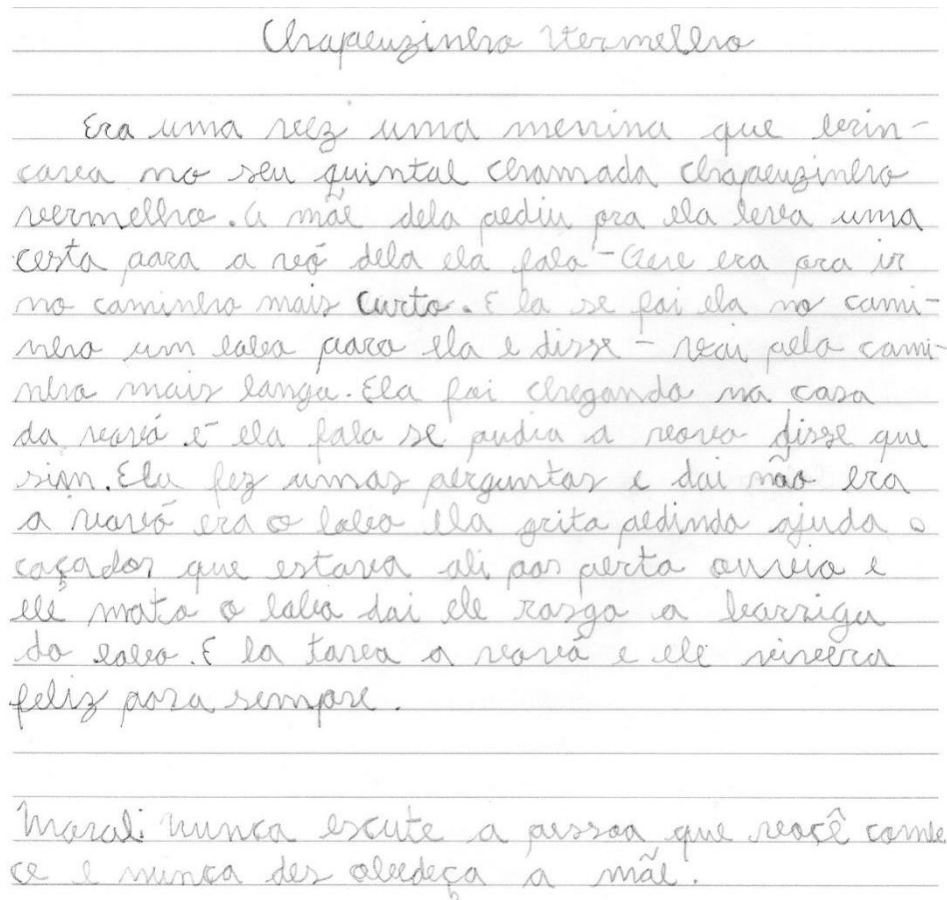 Chapeuzinho Vermelho
Era uma vez uma menina que brin-
cava no seu quintal chamada chapeuzinho
vermelho. A mãe dela pediu pra ela leva uma
cesta para a vó dela ela fala - Que era pra ir
no caminho mais curto. E la se foi ela no cami-
nho um lobo para ela e disse - vai pelo cami-
nho mais longo. Ela foi chegando na casa
da vovó e ela fala se pudia a vovo disse que
sim. Ela fez umas perguntas e dai não era
a vovó era o lobo ela grita pedindo ajuda o
caçador que estava ali por perto ouviu e
ele mata o lobo dai ele rasga a barriga
do lobo. E la tava a vovó e ele vivera
feliz para sempre.
Moral: nunca escute a pessoa que você conhe
ce e nunca des obedeça a mãe.